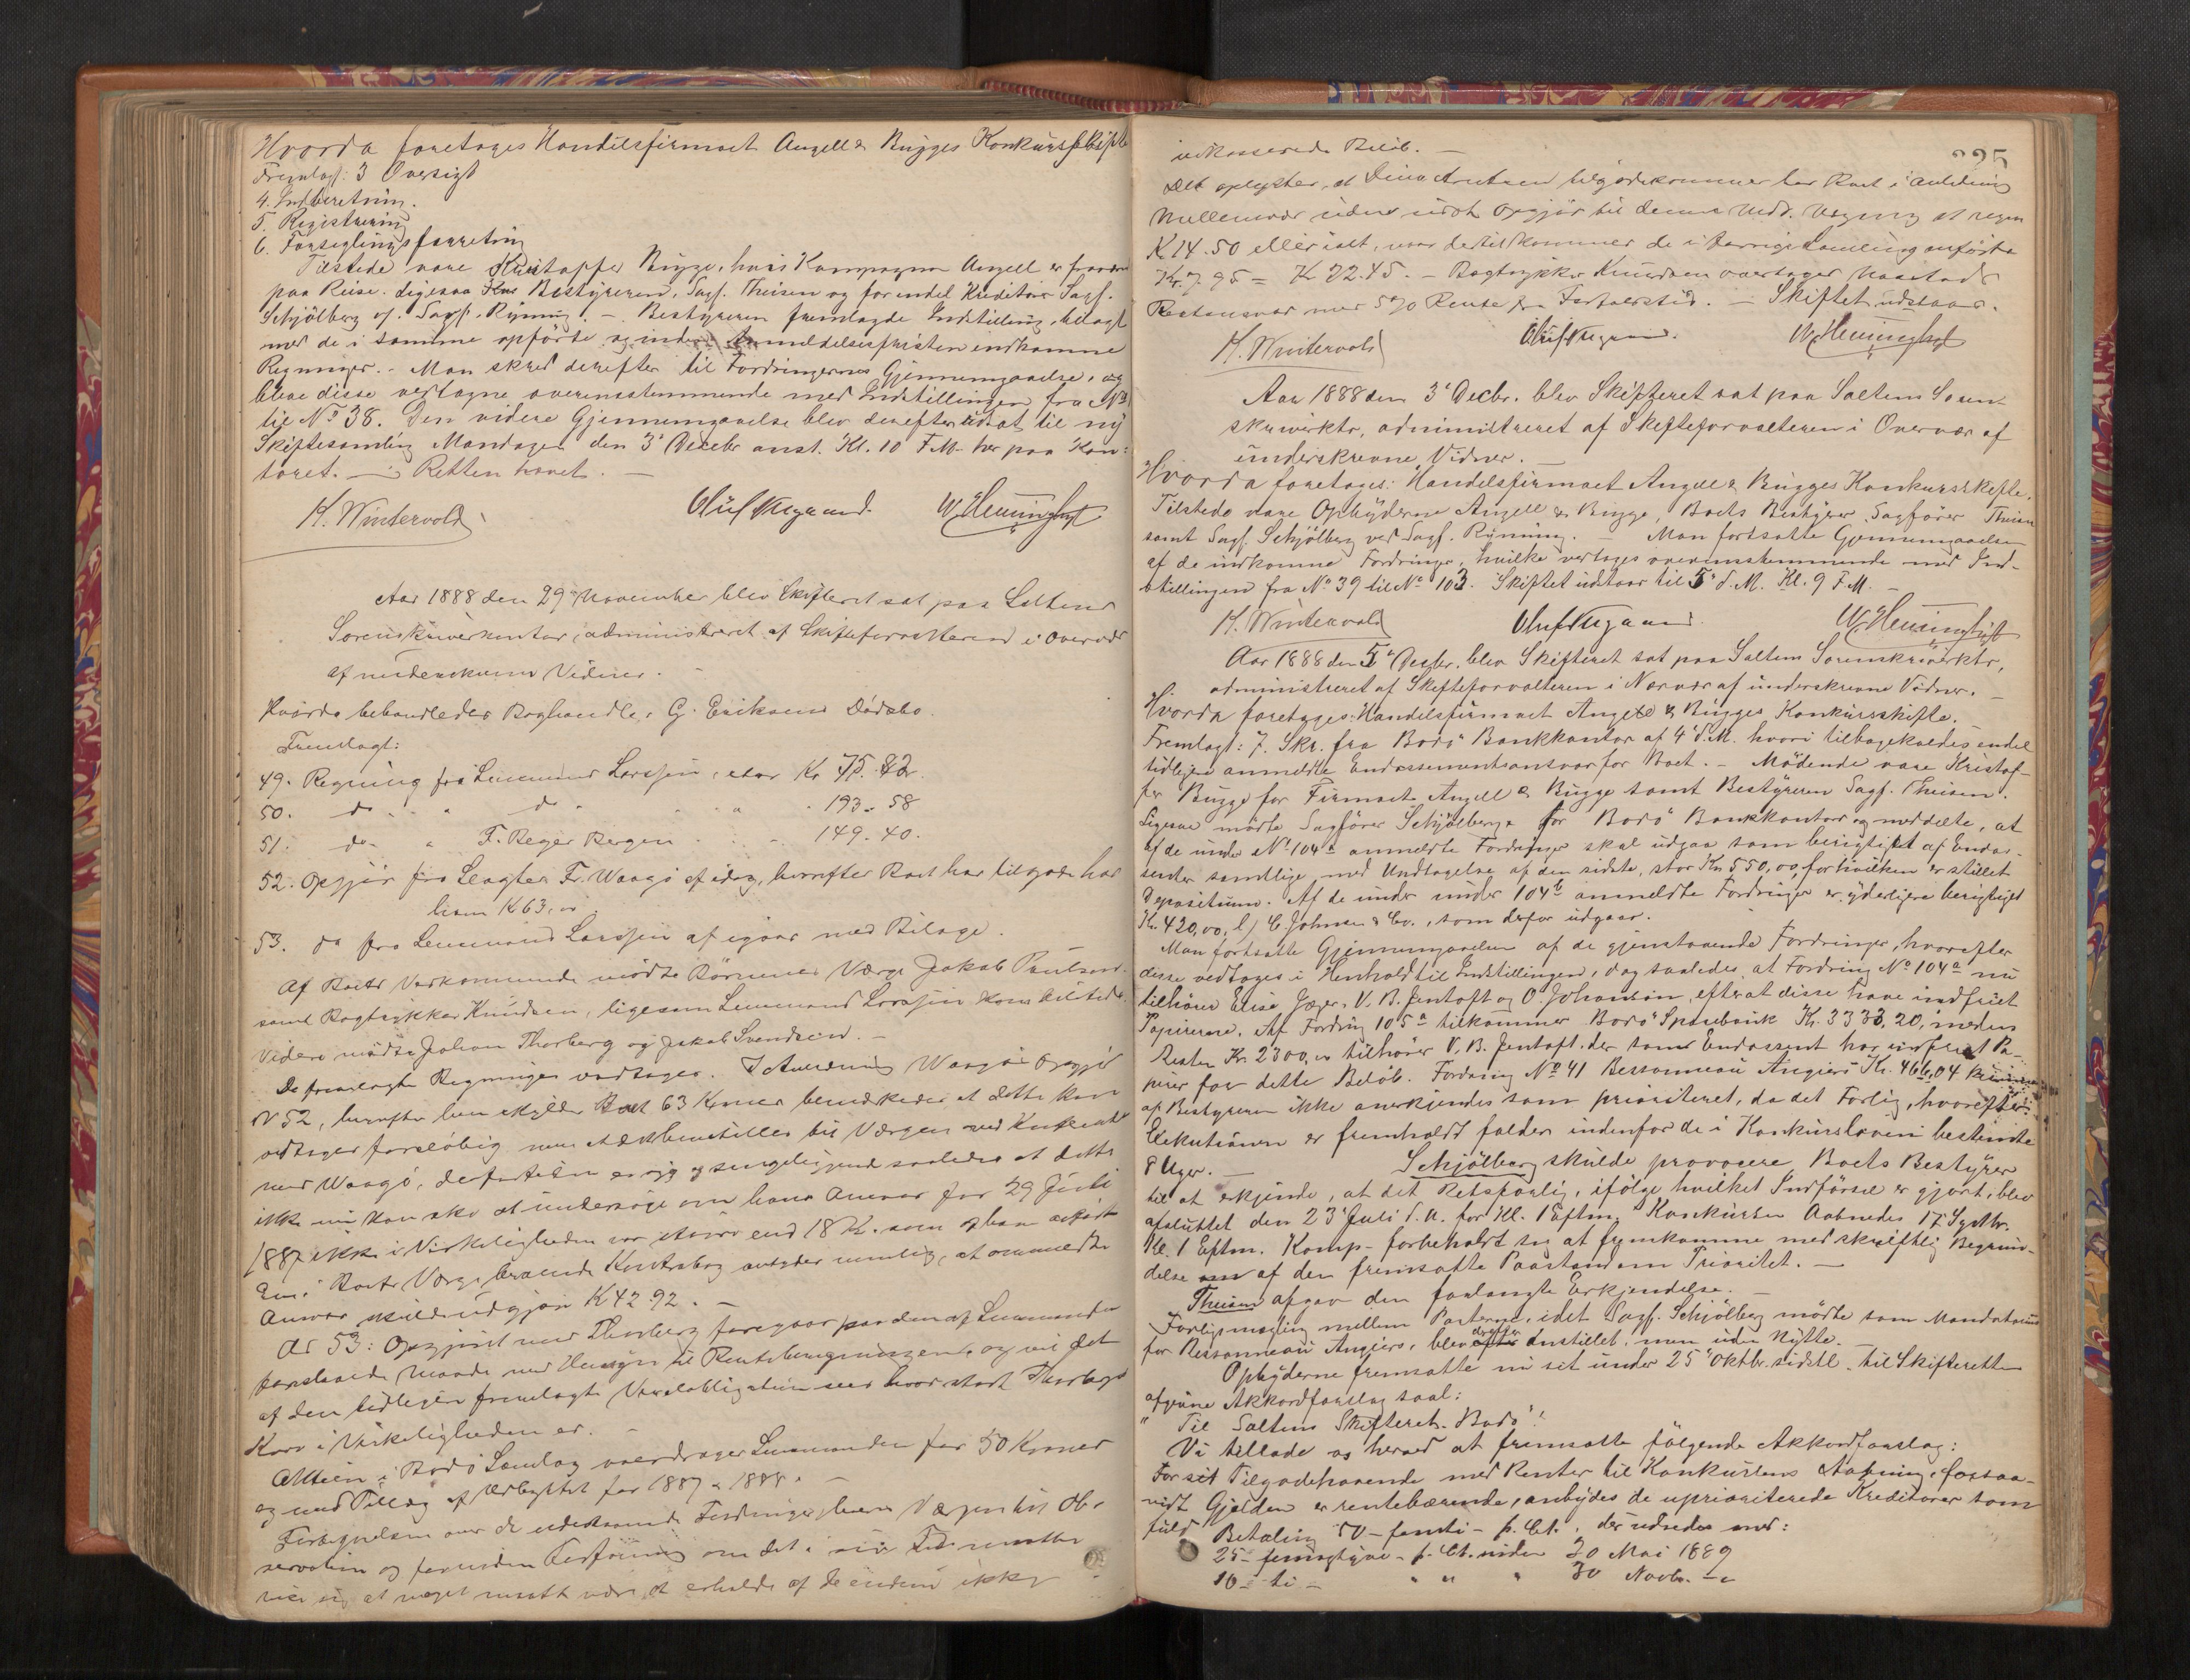 Hvorda foretages Handelsfirmaet Angell & Bugges Konkursskifte
Fremlagt: 3 Oversigt
4. Indberetning.
5. Registrering
6. Forseglingsforretning
Tilstede vare Kristoffer Bugge, hvis Kompagnon Angell er fraværende
paa Reise. Ligesaa Bestyreren, Sagf. Theisen og for endel Kreditorer Sagf.
Schjölberg v. Sagf. Rynning. - Bestyreren fremlagde Indstilling, bilagt
med de i samme opförte og inden Anmeldelsesfristen indkomne
Regninger. - Man skred derefter til Fordringernes Gjennemgaaelse, og
bleve disse vedtagne overensstemmende med Indstillingen fra No 1
til No 38. Den videre Gjennemgaaelse blev derefter udsat til ny
Skiftesamling Mandagen den 3' Decebr anst. Kl. 10 F.M. her paa Kon-
toret. - Retten hævet. -
H. Wintervold
Aar 1888 den 29 November blev Skifteret sat paa Saltens
Sorenskriverkontor, administreret af Skifteforvalteren i Overvær
af underskrevne Vidner. -
Hvorda behandledes Boghandler G. Eriksens Dödsbo.
Fremlagt:
49. Regning fra Lensmand Larssen, stor Kr 75.82.
50. do " do " " " 193.58
51. do " F. Beyer Bergen " " 149.40.
52. Opgjör fra Slagter Fr. Waagö af idag, hvorefter Boet har tilgode hos
ham K 63,00
53. do fra Lensmand Larssen af igaar med Bilage.
Af Boets Vedkommende mödte Börnenes Værge Jakob Paulsen
samt Bogtrykker Knudsen, ligesom Lensmand Larssen kom tilstede.
Videre mödte Johan Thorberg og Jakob Svendsen. -
De fremlagte Regninger vedtages. I Anledning Waagös Opgjör
N 52, hvorefter han skylder Boet 63 Kroner bemærkedes at dette kun
vedtages forelöbig
med Waagö, og sengeliggende saaledes at dette
ikke nu kan ske at undersöge om hans Ansvar for 29 Juli
1887 ikke i Virkeligheden var större end 18 Kr. som af ham
Ansvar skulde udgjöre K 42.92. -
Ad 53: Opgjöret med Thorberg foregaar paa den af Lensmanden
foreslaaede Maade med Hensyn til Renteberegningen og vil det
af den tidligere fremlagte Vexelobligation sees hvor stort Thorbergs
Krav i Virkeligheden er. -
Aktien i Bodö Samlag overdrages Lensmanden for 50 Kroner
og med Tillæg af Udbyttet for 1887 & 1888. -
Fortegnelsen over de udestaaende Fordringer, Værgen til Ob-
servation og
indkasserede Belöb. -
Det oplystes, at
K 14.50 eller ialt, naar dertil kommer de i forrige Samling anförte
Kr. 7.95 = K 22.45. - Bogtrykker Knudsen overtager
Restansvar med 5% Rente fra Forfaldstid. - Skiftet udstaar.
H. Wintervold
Aar 1888 den 3' Decbr. blev Skifteret sat paa Saltens Soren-
skriverktr, administreret af Skifteforvalteren i Overvær af
underskrevne Vidner. -
Hvorda foretages: Handelsfirmaet Angell & Bugges Konkursskifte.
Tilstede vare Opbyderne Angell & Bugge, Boets Bestyrer Sagförer Theisen
samt Sagf. Schjölberg ved Sagf. Rynning. - Man fortsatte Gjennemgaaelsen
af de indkomne Fordringer, hvilke vedtages overensstemmende med Ind-
stillingen fra No 39 til No 103. Skiftet udstaar til 5' d.M. Kl. 9 F.M. -
H. Wintervold
Aar 1888 den 5' Decbr. blev Skifteret sat paa Saltens Sorenskriverktr,
administreret af Skifteforvalteren i Nærvær af underskrevne Vidner. -
Hvorda foretages: Handelsfirmaet Angell & Bugges Konkursskifte. -
Fremlagt: 7. Skr. fra Bodö Bankkontor af 4' d.M. hvori tilbagekaldes endel
tidligere anmeldte Endossementsansvar for Boet. - Mödende vare Kristof-
fer Bugge for Firmaet Angell & Bugge samt Bestyreren Sagf. Theisen.
Ligesaa mödte Sagförer Schjölberg for Bodö Bankkontor og meddelte, at
af de under No 104 a anmeldte Fordringer skal udgaa som berigtiget af Endos-
senter samtlige, med Undtagelse af den sidste, stor Kr. 550,00, for hvilken er stillet
Depositum. Af de under under 104 b anmeldte Fordringer er yderligere berigtiget
Kr. 420,00, l/ C. Johnsen & Co., som derfor udgaar.
Man fortsatte Gjennemgaaelsen af de gjenstaaende Fordringer, hvorefter
disse vedtages i Henhold til Indstillingen, dog saaledes, at Fordring No 104 a nu
tilhörer Elise Jæger, V. B. Jentoft og O. Johansen, efterat disse have indfriet
Papirerne. Af Fordring 105 a tilkommer Bodö Sparebank Kr. 3333,20, medens
Resten Kr. 2300,00 tilhörer V. B. Jentoft, der som Endossent har indfriet Pa-
pirer for dette Belöb. Fordring No 41 Bessonneau Angiers Kr. 466,04
af Bestyreren ikke anerkjendes som prioriteret, da det Forlig, hvorefter
Exekutionen er fremholdt falder indenfor de i Konkursloven bestemte
8 Uger. - Schjölberg skulde provocere Boets Bestyrer
til at erkjende, at det Retsforlig, ifölge hvilket Indförsel er gjort, blev
afsluttet den 23 Juli d. A. for Kl. 1 Eftm. Konkursen aabnedes 17 Septbr.
Kl. 1 Eftm. Komp. forbeholdt sig at fremkomme med skriftlig Begrun-
delse af den fremsatte Paastand om Prioritet. -
Theisen afgav den forlangte Erkjendelse. -
Forligsmægling mellem Parterne, idet Sagf. Schjölberg mödte som Mandatarius
for Bessonneau Angiers, blev derefter anstillet, men uden Nytte. -
Opbyderne fremsatte nu sit under 25' Oktbr. sidstl. til Skifteretten
afgivne Akkordforslag saal:
" Til Saltens Skifteret. Bodö!
Vi tillade os herved at fremsætte fölgende Akkordforslag:
For sit Tilgodehavende med Renter til Konkursens Aabning, forsaa-
vidt Gjelden er rentebærende, anbydes de uprioriterede Kreditorer som
fuld Betaling 50 - femti - p. Ct., der udredes med:
25 - femogtyve - p. Ct. inden 30 Mai 1889
10 - ti - " " " 30 Novbr. - "